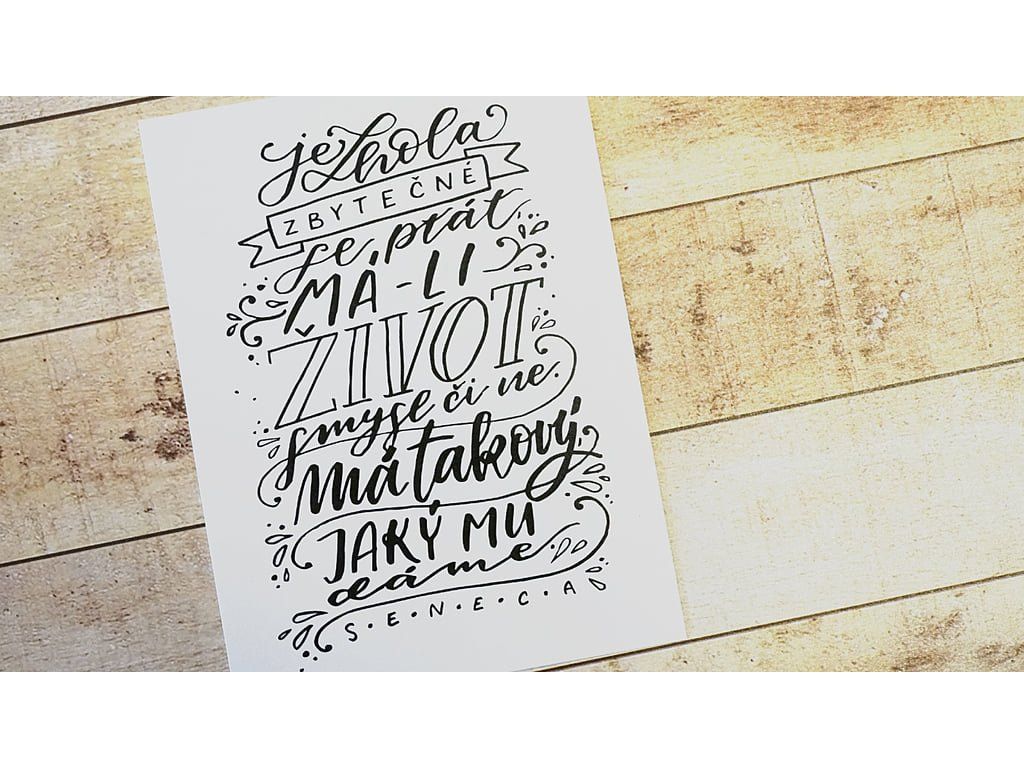 je zhola
ZBYTEČNÉ
se ptát
MÁ-LI
ŽIVOT
smysl či ne.
má takový,
JAKÝ MU
dáme
S·E·N·E·C·A